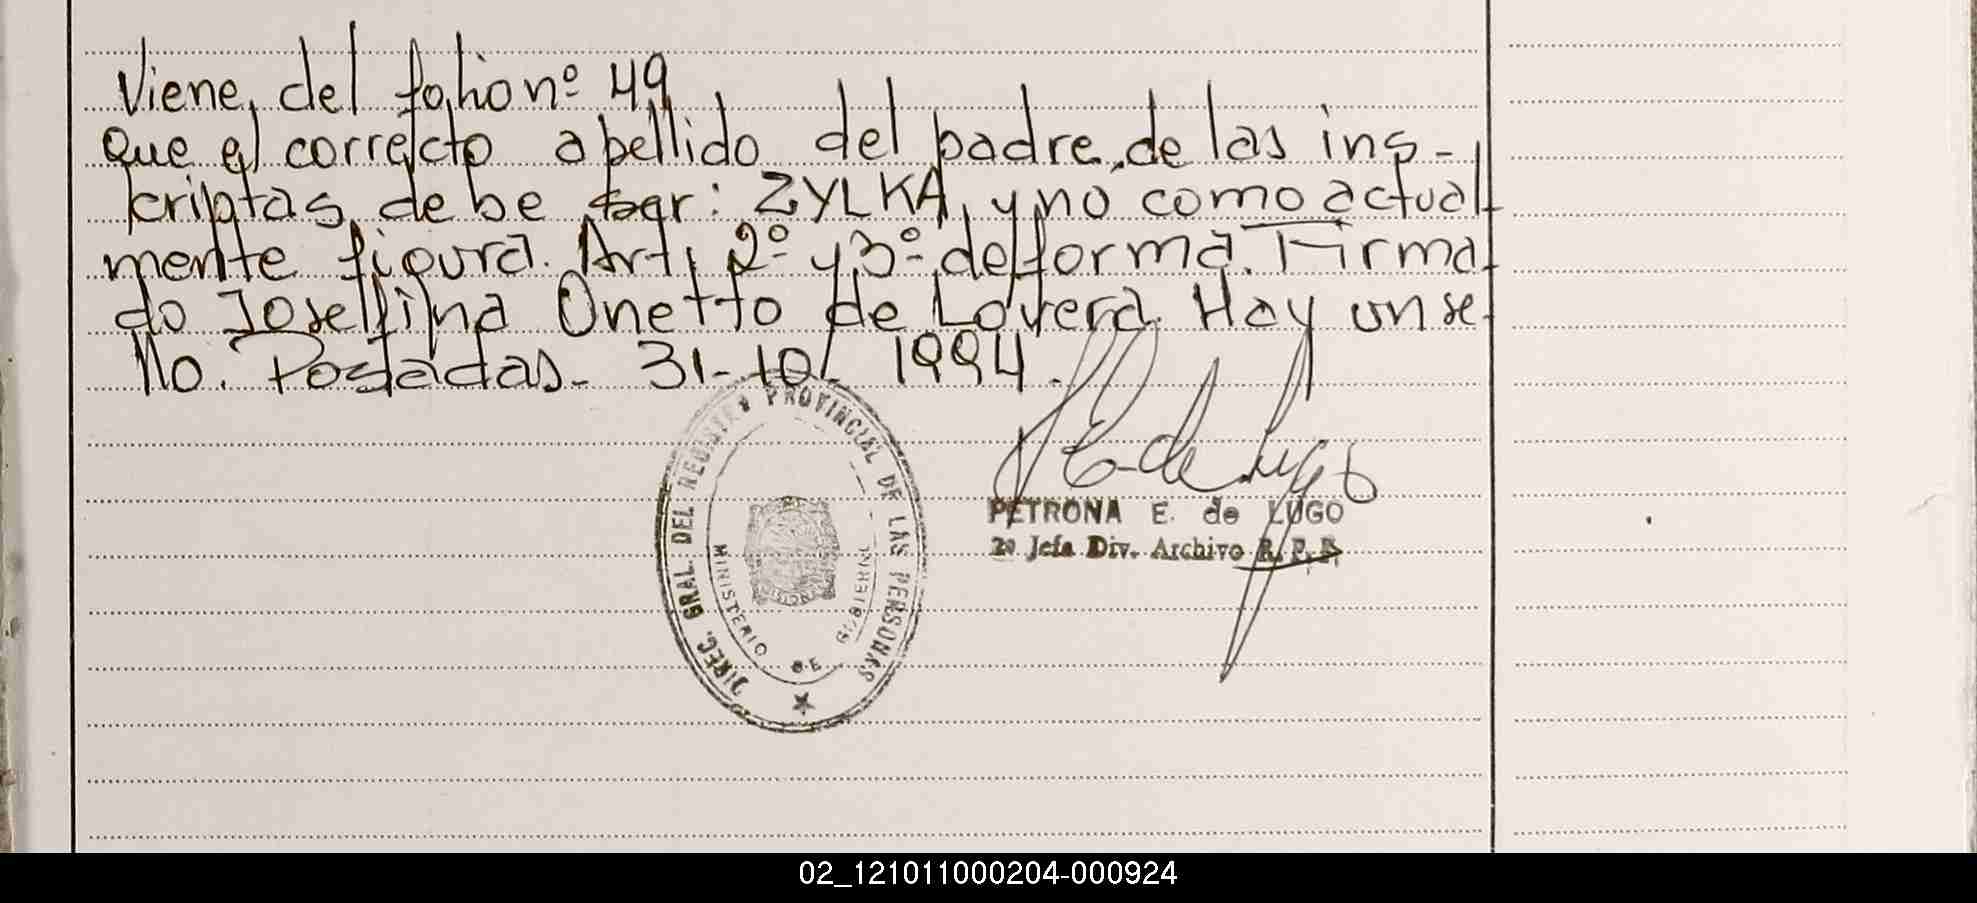 Viene del folio nº 49
Que el correcto apellido del padre de las ins-
criptas, debe ser: ZYLKA, y no como actual
mente figura. Art, 2º y 3º de forma. Firma
do Josefina Onetto de Lovera. Hay un se
llo. Posadas. 31-10- 1994.
DIREC. GRAL. DEL REGISTRO PROVINCIAL DE LAS PERSONAS
MINISTERIO DE GOBIERNO
MISIONES
P E de Lugo
PETRONA E. de LUGO
2º Jefa Div. Archivo R. P. P.
02_121011000204-000924